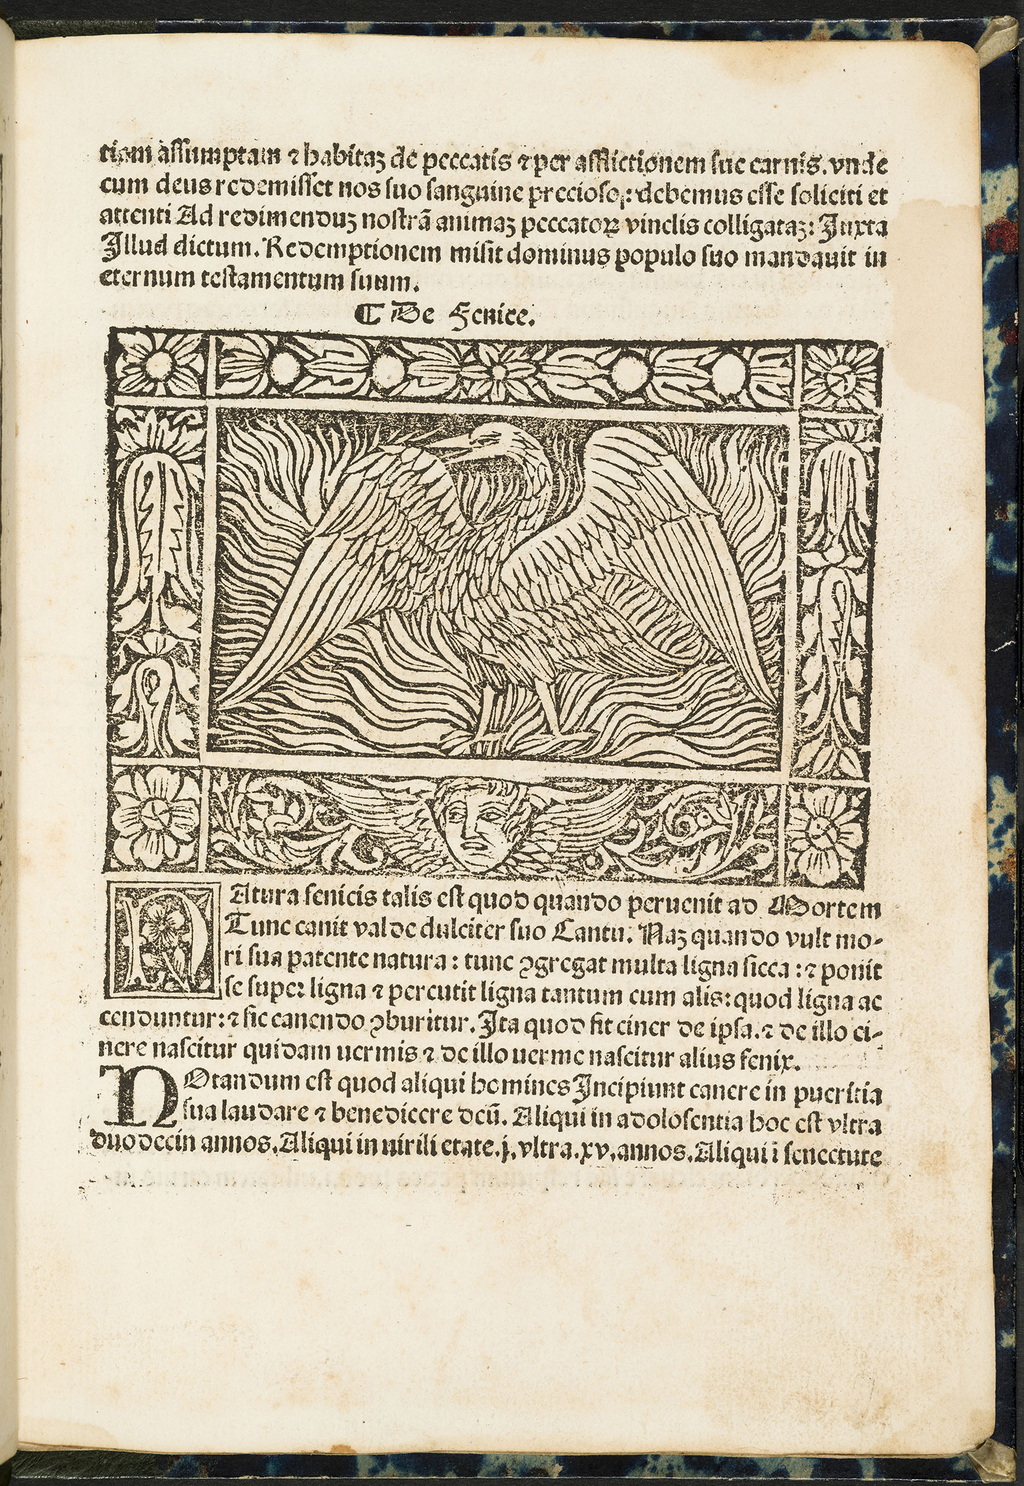 tiam assumptam ⁊ habitaꝫ de peccatis ⁊ per afflictionem sue carnis. vnde
cum deus redemisset nos suo sanguine precioso: debemus esse soliciti et
attenti Ad redimenduꝫ nostrā animaꝫ peccatoꝝ vinclis colligataꝫ: Juxta
Jllud dictum. Redemptionem misit dominus populo suo mandauit in
eternum testamentum suum.
¶ De Fenice.
NAtura fenicis talis est quod quando peruenit ad Mortem
Tunc canit valde dulciter suo Cantu. Naꝫ quando vult mo-
ri sua patente natura: tunc ꝯgregat multa ligna sicca: ⁊ ponit
se super ligna ⁊ percutit ligna tantum cum alis: quod ligna ac
cenduntur: ⁊ sic canendo ꝯburitur. Jta quod fit ciner de ipsa. ⁊ de illo ci-
nere nascitur quidam uermis ⁊ de illo uerme nascitur alius fenix.
NOtandum est quod aliqui homines Jncipiunt canere in pueritia
sua laudare ⁊ benedicere deū. Aliqui in adolosentia hoc est vltra
duodecin annos. Aliqui in uirili etate. j. vltra. xv. annos. Aliqui ī senectute